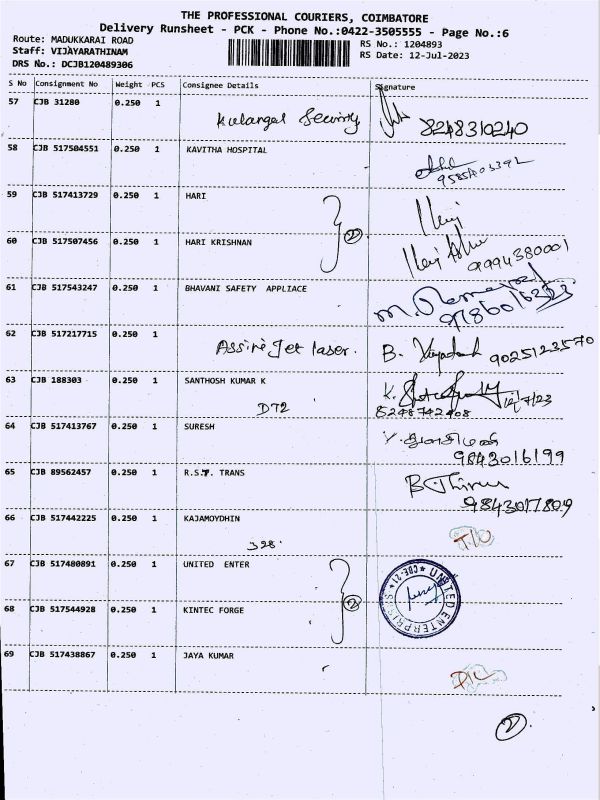 THE PROFESSIONAL COURIERS, COIMBATORE
Delivery Runsheet - PCK - Phone No.:0422-3505555 - Page No.:6
Route: MADUKKARAI ROAD
Staff: VIJAYARATHINAM
DRS No.: DCJB120489306
RS No.: 1204893
RS Date: 12-Jul-2023
S No Consignment No Weight PCS Consignee Details Signature
57 CJB 31280 0.250 1 Kulangal Security 8248310240
58 CJB 517504551 0.250 1 KAVITHA HOSPITAL
59 CJB 517413729 0.250 1 HARI
2
60 CJB 517507456 0.250 1 HARI KRISHNAN 9994380001
61 CJB 517543247 0.250 1 BHAVANI SAFETY APPLIACE
62 CJB 517217715 0.250 1 Assire Jet laser. B. 9025123570
63 CJB 188303 0.250 1 SANTHOSH KUMAR K K. 12/7/23
D72 8248742408
64 CJB 517413767 0.250 1 SURESH
9843016199
65 CJB 89562457 0.250 1 R.S.T. TRANS B. Thiru
9843017809
66 CJB 517442225 0.250 1 KAJAMOYDHIN
328
67 CJB 517480891 0.250 1 UNITED ENTER
2
UNITED ENTERPRISES * CBE-21 *
68 CJB 517544928 0.250 1 KINTEC FORGE
69 CJB 517438867 0.250 1 JAYA KUMAR
2